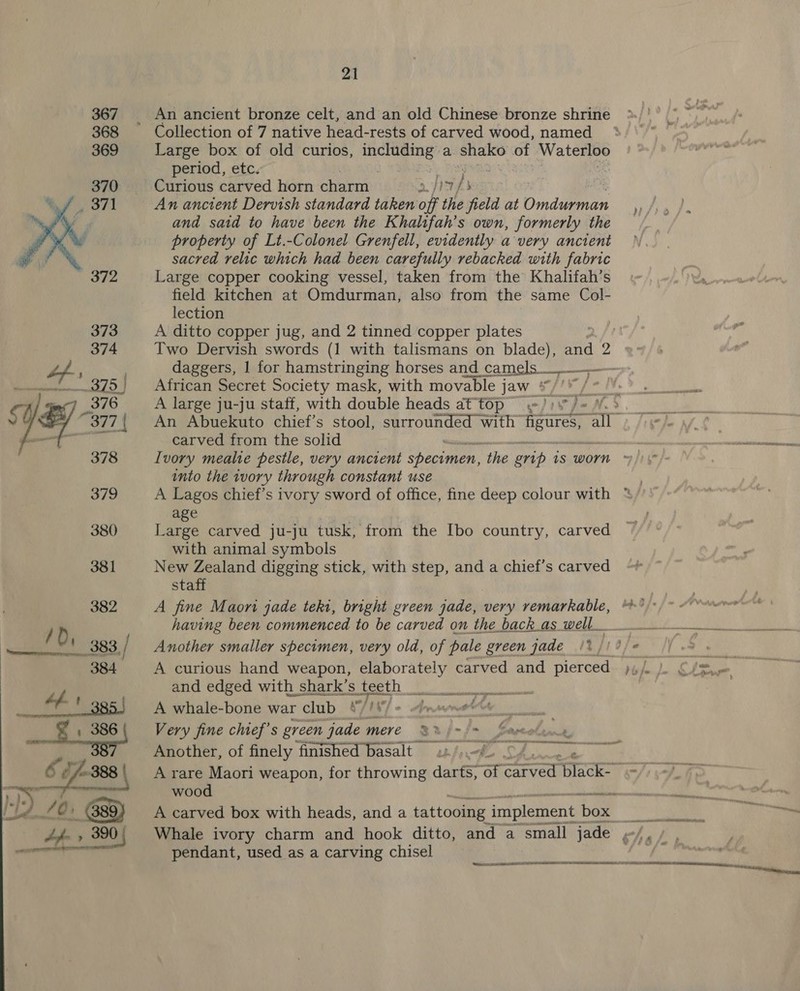 21
367 An ancient bronze celt, and an old Chinese bronze shrine
368 Collection of 7 native head-rests of carved wood, named
369 Large box of old curios, including a shako of Waterloo
period, etc.
370 Curious carved horn charm
371 An ancient Dervish standard taken off the field at Omdurman
and said to have been the Khalifah's own, formerly the
property of Lt.-Colonel Grenfell, evidently a very ancient
sacred relic which had been carefully rebacked with fabric
372 Large copper cooking vessel, taken from the Khalifah's
field kitchen at Omdurman, also from the same Col-
lection
373 A ditto copper jug, and 2 tinned copper plates
374 Two Dervish swords (1 with talismans on blade), and 2
daggers, 1 for hamstringing horses and camels
375 African Secret Society mask, with movable jaw
376 A large ju-ju staff, with double heads at top
377 An Abuekuto chief's stool, surrounded with figures, all
carved from the solid
378 Ivory mealie pestle, very ancient specimen, the grip is worn
into the ivory through constant use
379 A Lagos chief's ivory sword of office, fine deep colour with
age
380 Large carved ju-ju tusk, from the Ibo country, carved
with animal symbols
381 New Zealand digging stick, with step, and a chief's carved
staff
382 A fine Maori jade teki, bright green jade, very remarkable,
having been commenced to be carved on the back as well
383 Another smaller specimen, very old, of pale green jade
384 A curious hand weapon, elaborately carved and pierced
and edged with shark's teeth
385 A whale-bone war club
386 Very fine chief's green jade mere
387 Another, of finely finished basalt
388 A rare Maori weapon, for throwing darts, of carved black-
wood
389 A carved box with heads, and a tattooing implement box
390 Whale ivory charm and hook ditto, and a small jade
pendant, used as a carving chisel